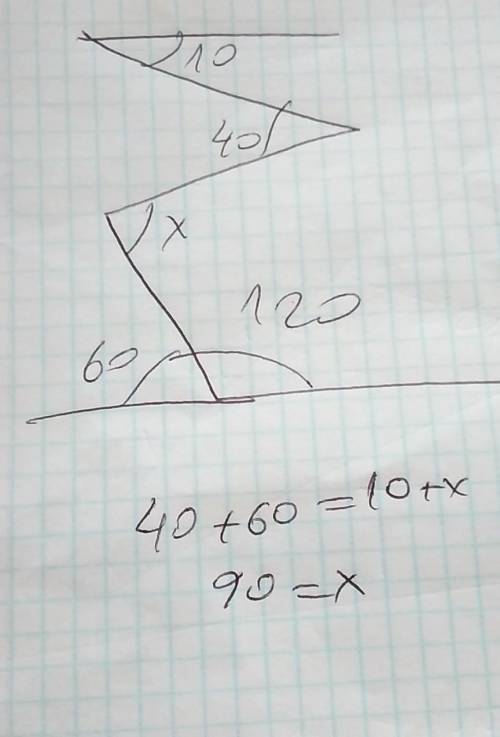 10
40
x
120
60
40+60=10+x
90=x